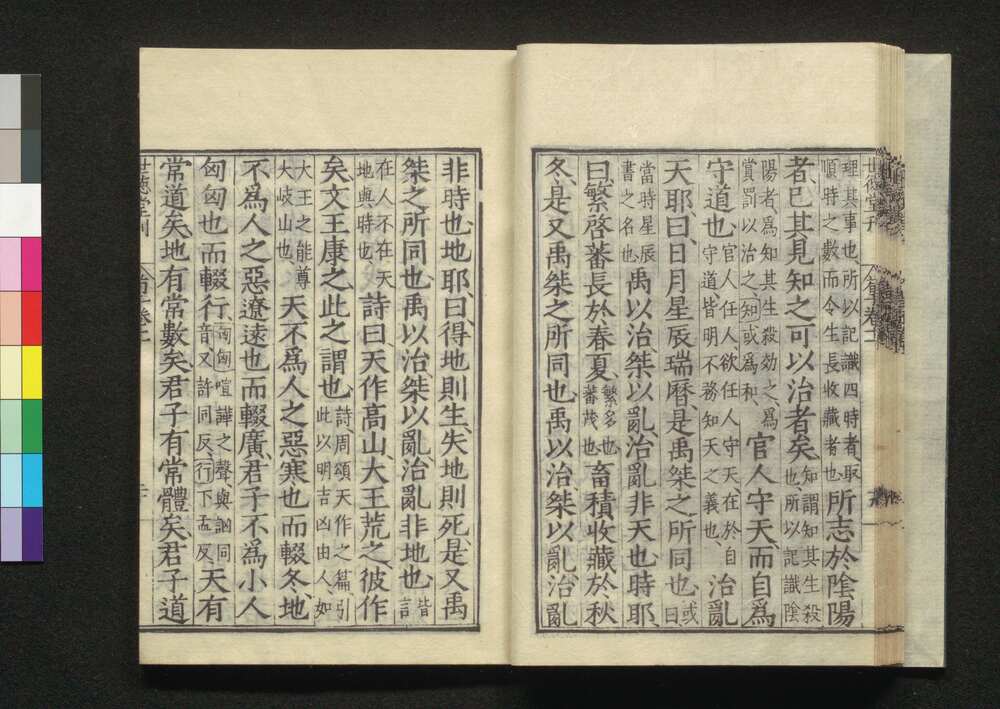 理其事也所以記識四時者取
順時之數而令生長收藏者也
所志於陰陽
者已其見知之可以治者矣
知謂知其生殺
也所以記識陰
陽者爲知其生殺効之爲
賞罰以治之知或爲和
官人守天而自爲
守道也
官人任人欲任人守天在於自
守道皆明不務知天之義也
治亂
天耶曰日月星辰瑞曆是禹桀之所同也
或
曰
當時星辰
書之名也
禹以治桀以亂治亂非天也時耶
曰繁啓蕃長於春夏
繁多也
蕃茂也
畜積收藏於秋
冬是又禹桀之所同也禹以治桀以亂治亂
非時也地耶曰得地則生失地則死是又禹
桀之所同也禹以治桀以亂治亂非地也
皆
言
在人不在天
地與時也
詩曰天作高山大王荒之彼作
矣文王康之此之謂也
詩周頌天作之篇引
此以明吉凶由人如
大王之能尊
大岐山也
天不爲人之惡寒也而輟冬地
不爲人之惡遼遠也而輟廣君子不爲小人
匈匈也而輟行
匈匈喧譁之聲與訩同
音又許同反行下孟反
天有
常道矣地有常數矣君子有常體矣君子道